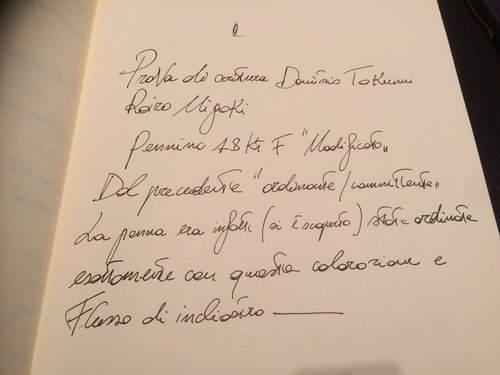 Prova di scrittura Danitrio Takumi
Roiro Migaki
Pennino 18 Kt F "Modificato"
Dal precedente "ordinante/committente"
La penna era infatti (si è scoperto) stata ordinata
esattamente con questa colorazione e
Flusso di inchiostro